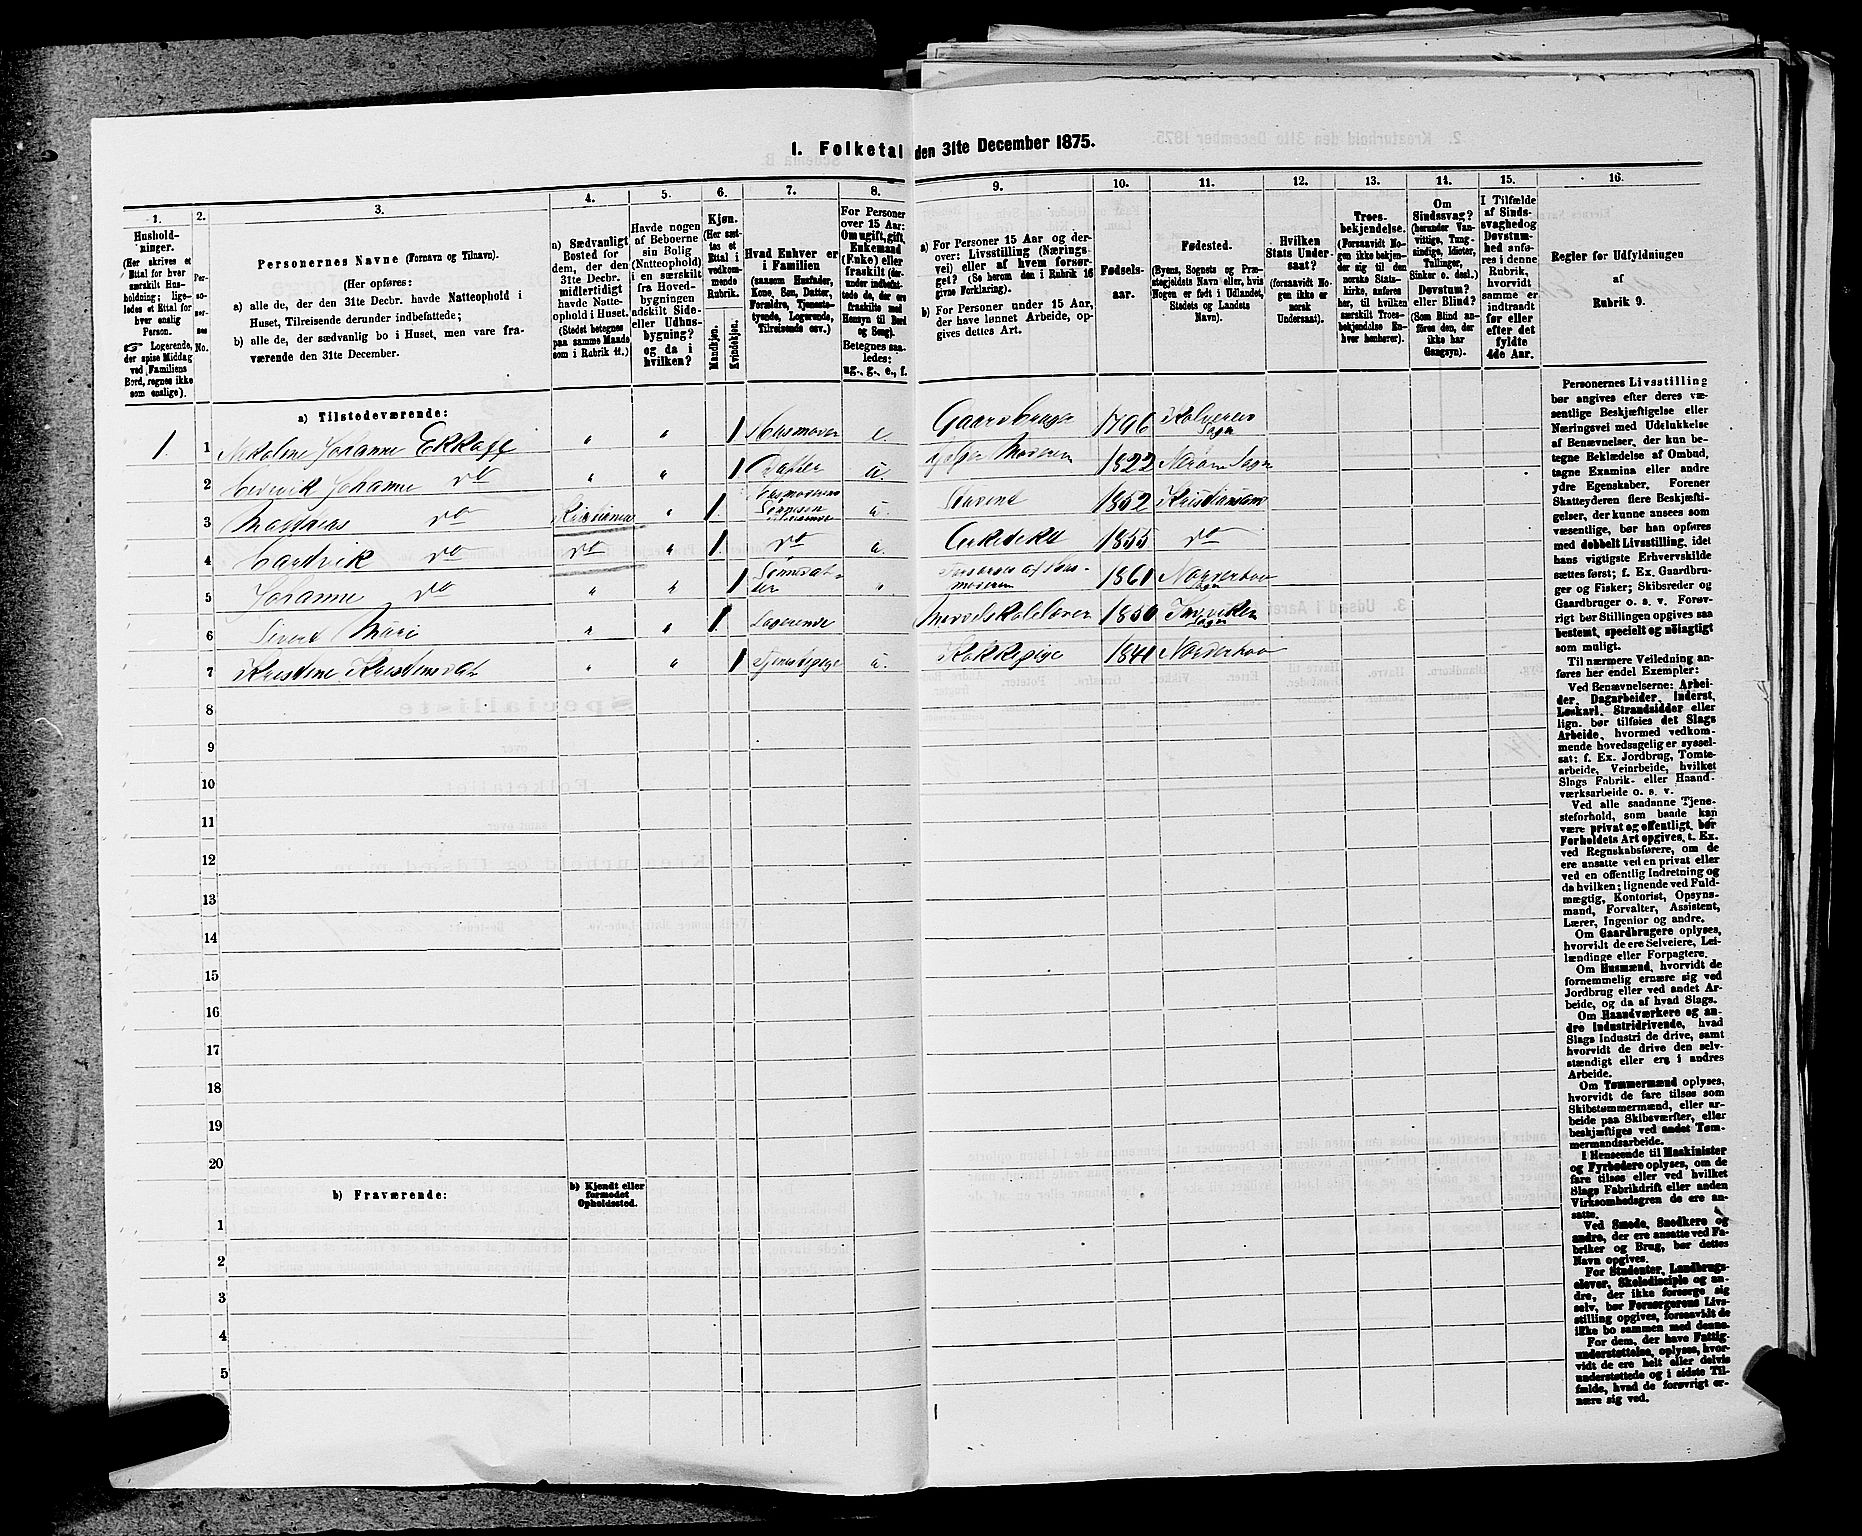 1. Folketal den 31te December 1875.
1.
2.
3.
4.
5.
6.
7.
8.
9.
10.
11.
12.
13.
14.
15.
16.
Hushold-
ninger.
(Her skrives et
Ettal for hver
særskilt Hus-
holdning; lige-
ledes et Ettal for
hver enslig
Person.
☞ Logerende,
der spise Middag
ved Familiens
Bord, regnes ikke
som enslige).
Per-
so-
ner-
nes
No.
Personernes Navne (Fornavn og Tilnavn).
(Her opføres:
a) alle de, der den 31te Decbr. havde Natteophold i
Huset, Tilreisende derunder indbefattede;
b) alle de, der sædvanlig bo i Huset, men vare fra-
værende den 31te December.
a) Sædvanligt
Bosted for
dem, der den
31te Decbr.
midlertidigt
havde Natte-
ophold i Huset.
(Stedet betegnes
paa samme Maade
som i Rubrik 11.)
Havde nogen
af Beboerne
sin Bolig
(Natteophold)
i en særskilt
fra Hoved-
bygningen
adskilt Side-
eller Udhus-
bygning?
og da i
hvilken?
Kjøn.
(Her sæt-
tes et
Ettal i
vedkom-
mende
Rubrik.
Mandkjøn.
Kvindekjøn.
Hvad Enhver er
i Familien
(saasom Husfader,
Kone, Søn, Datter,
Forældre, Tjeneste-
tyende, Logerende,
Tilreisende osv.)
For Personer
over 15 Aar:
Om ugift, gift,
Enkemand
(Enke) eller
fraskilt (der-
under indbefat-
tede de, der ere
fraskilte med
Hensyn til Bord
og Seng).
Betegnes saa-
ledes:
ug., g., e., f.
a) For Personer 15 Aar og der-
over: Livsstilling (Nærings-
vei) eller af hvem forsør-
get? (Se herom den i Rubrik 16
givne Forklaring).
b) For Personer under 15 Aar,
der have lønnet Arbeide, op-
gives dettes Art.
Fødsels-
aar.
Fødested.
(Byens, Sognets og Præ-
stegjeldets Navn eller, hvis
Nogen er født i Udlandet,
Stedets og Landets
Navn).
Hvilken
Stats Under-
saat?
(forsaavidt No-
gen ikke er
norsk
Undersaat).
Troes-
bekjendelse.
(Forsaavidt No-
gen ikke bekjen-
der sig til den
norske Stats-
kirke, anføres
her, til hvilken
særskilt Troes-
bekjendelse En-
hver henhører).
Om
Sindssvag?
(herunder Van-
vittige, Tung-
sindige, Idioter,
Tullinger,
Sinker o. desl.)
Døvstum?
eller Blind?
(Som Blind an-
føres den, der
ikke har
Gangsyn).
I Tilfælde
af Sinds-
svaghed og
Døvstum-
hed anfø-
res i denne
Rubrik,
hvorvidt
samme er
indtraadt
før eller
efter det
fyldte
4de Aar.
Regler for Udfyldningen
af
Rubrik 9.
a) Tilstedeværende:
1 1 Nikoline Johanne Ekkoff „ „ 1 Husmoder e. Gaardbruger 1796
2 Hedevik Johanne do „ „ 1 Datter u. Moderen 1822 Nærø Sogn
3 Mathias do Kristiania „ 1 u. Student 1852 Kristiansund
4 Hartvik do do „ 1 do u. 1855 do
5 Johanne do „ „ 1 Sønnedat-
ter „ Forsørges af Hus-
moderen 1861 Norderhov
Sogn
6 Sivert „ „ 1 Logerende 1850 Sogn
7 Kristine Kristensdat „ „ 1 Tjenestepige u. Kokkepige 1841 Norderhov
8
9
10
11
12
13
14
15
16
17
18
19
20
b) Fraværende:
b) Kjendt eller
formodet
Opholdssted.
1
2
3
4
5
Personernes Livsstilling
bør angives efter deres væ-
sentlige Beskjæftigelse eller
Næringsvei med Udelukkelse
af Benævnelser, der kun be-
tegne Beklædelse af Ombud,
tagne Examina eller andre
ydre Egenskaber. Forener
Skatteyderen flere Beskjæfti-
gelser, der kunne ansees som
væsentlige, bør han opføres
med dobbelt Livsstilling, idet
hans vigtigste Erhvervskilde
sættes først; f. Ex. Gaardbru-
ger og Fisker; Skibsreder og
Gaardbruger o. s. v. Forøv-
rigt bør Stillingen opgives saa
bestemt, specielt og nöiagtigt
som muligt.
Til nærmere Veiledning an-
føres her endel Exempler:
Ved Benævnelserne: Arbei-
der, Dagarbeider, Inderst,
Løskarl, Strandsidder eller
lign. bør tilføies det Slags
Arbeide, hvormed vedkom-
mende hovedsagelig er syssel-
sat: f. Ex. Jordbrug, Tomte-
arbeide, Veiarbeide, hvilket
Slags Fabrik- eller Haand-
værksarbeide o. s. v.
Ved alle saadanne Tjene-
steforhold, som baade kan
være privat og offentligt, bør
Forholdets Art opgives, t. Ex.
ved Regnskabsførere, om de
ere ansatte ved en privat eller
ved en offentlig Indretning og
da hvilken; lignende ved Fuld-
mægtig, Kontorist, Opsyns-
mand, Forvalter, Assistent,
Lærer, Ingeniør og andre.
Om Gaardbrugere oplyses,
hvorvidt de ere Selveiere, Lei-
lændinge eller Forpagtere.
Om Husmænd, hvorvidt de
fornemmelig ernære sig ved
Jordbrug eller ved andet Ar-
beide, og da af hvad Slags.
Om Haandværkere og an-
dre Industridrivende, hvad
Slags Industri de drive, samt
hvorvidt de drive den selv-
stændigt eller ere i andres
Arbeide.
Om Tømmermænd oplyses,
hvorvidt de fare tilsøs som
Skibstømmermænd, eller ar-
beide paa Skibsværfter, eller
beskjæftiges ved andet Tøm-
mermandsarbeide.
I Henseende til Maskinister
og Fyrbødere oplyses, om de
fare tilsøs eller ved hvilket
Slags Fabrikdrift eller anden
Virksomhedsgren de ere an-
satte.
Ved Smede, Snedkere og
andre, der ere ansatte ved Fa-
briker og Brug, bør dettes
Navn opgives.
For Studenter, Landbrugs-
elever, Skoledisciple og an-
dre, der ikke forsørge sig
selv, bør Forsørgerens Livs-
stilling opgives, forsaavidt de
ikke bo sammen med denne.
For dem, der have Fattig-
understøttelse, oplyses, hvor-
vidt de ere helt eller delvis
understøttede og i sidste Til-
fælde, hvad de forøvrigt er-
nære sig ved.